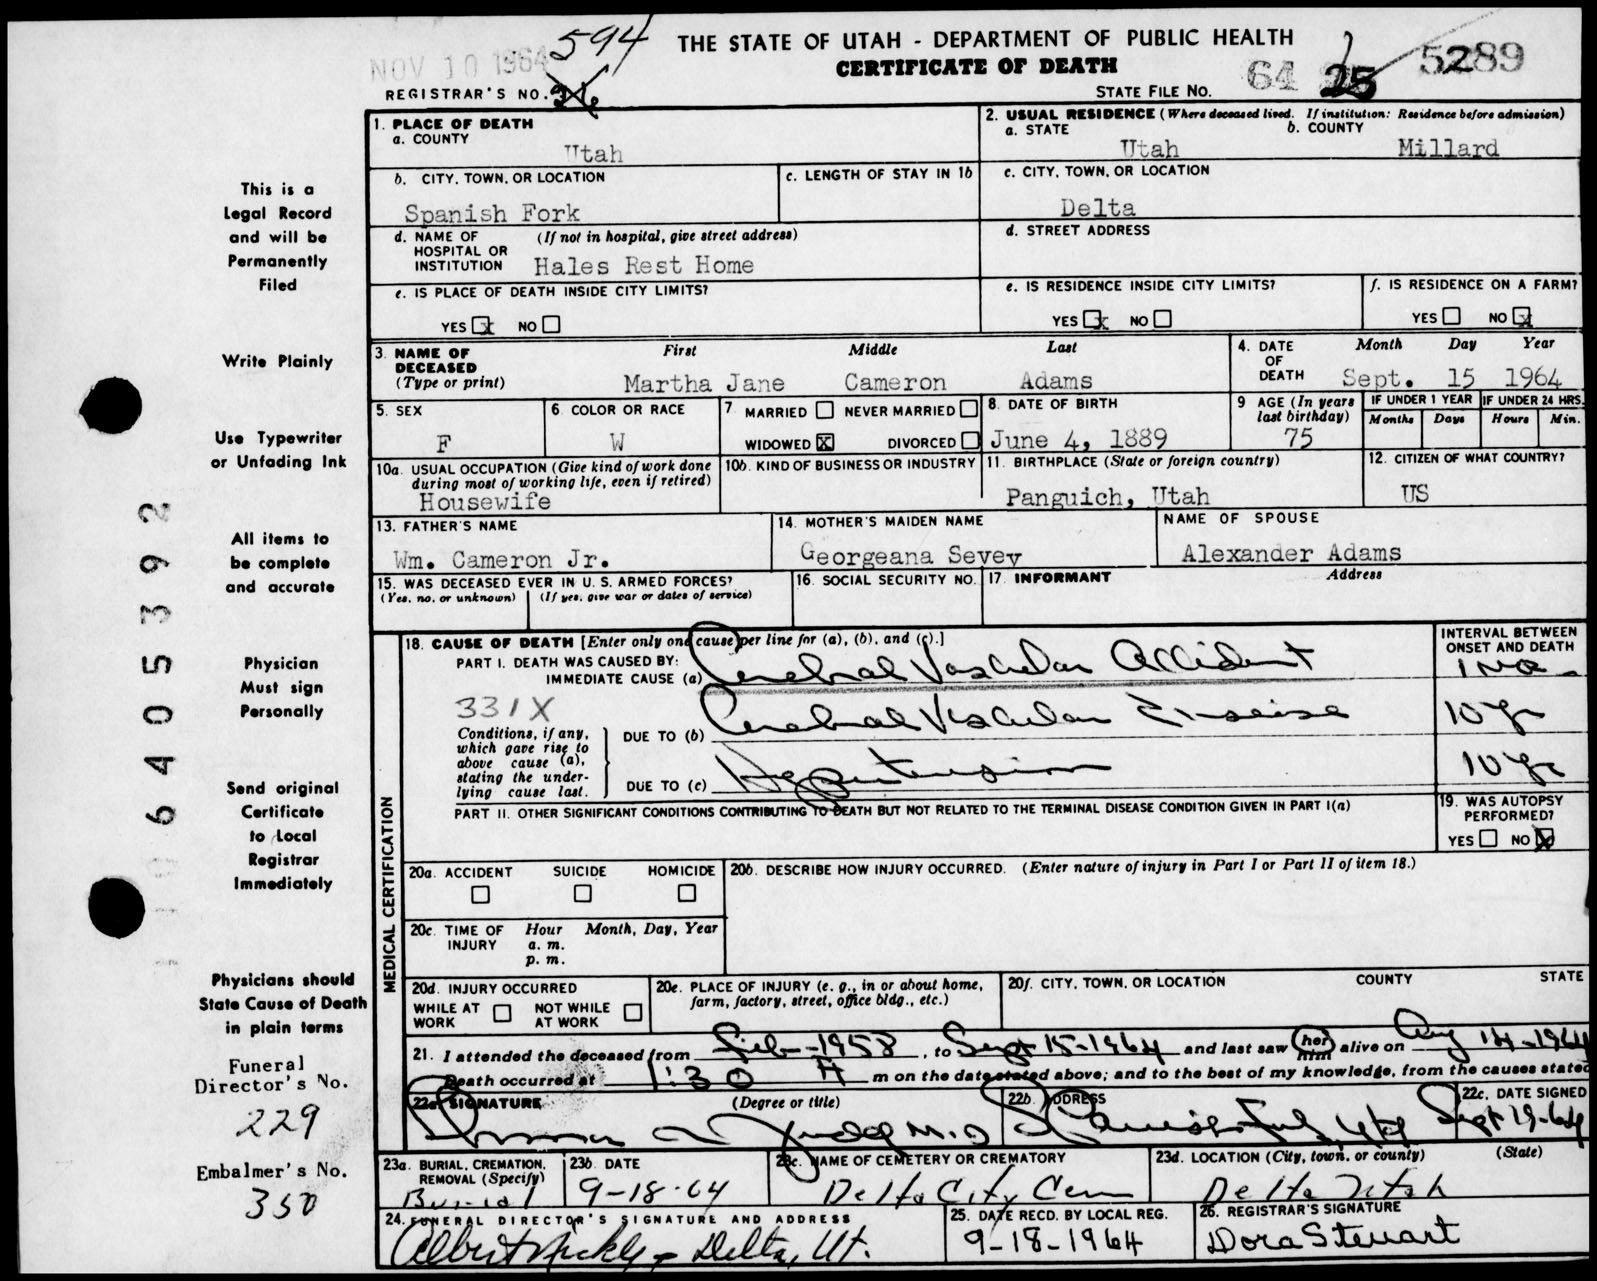 NOV 10 1964 594
THE STATE OF UTAH - DEPARTMENT OF PUBLIC HEALTH
CERTIFICATE OF DEATH
REGISTRAR'S NO.
STATE FILE No. 64 25 5289
This is a
Legal Record
and will be
Permanently
Filed
Write Plainly
Use Typewriter
or Unfading Ink
All items to
be complete
and accurate
Physician
Must sign
Personally
Send original
Certificate
to Local
Registrar
Immediately
Physicians should
State Cause of Death
in plain terms
Funeral
Director's No.
229
Embalmer's No.
350
6405392
1. PLACE OF DEATH
a. COUNTY
Utah
2. USUAL RESIDENCE (Where deceased lived. If institution: Residence before admission)
a. STATE b. COUNTY
Utah Millard
b. CITY, TOWN, OR LOCATION
Spanish Fork
c. LENGTH OF STAY IN 1b
c. CITY, TOWN, OR LOCATION
Delta
d. NAME OF (If not in hospital, give street address)
HOSPITAL OR
INSTITUTION Hales Rest Home
d. STREET ADDRESS
e. IS PLACE OF DEATH INSIDE CITY LIMITS?
YES x NO
e. IS RESIDENCE INSIDE CITY LIMITS?
YES x NO
f. IS RESIDENCE ON A FARM?
YES NO x
3. NAME OF First Middle Last
DECEASED
(Type or print) Martha Jane Cameron Adams
4. DATE Month Day Year
OF
DEATH Sept. 15 1964
5. SEX
F
6. COLOR OR RACE
W
7. MARRIED NEVER MARRIED
WIDOWED X DIVORCED
8. DATE OF BIRTH
June 4, 1889
9 AGE (In years
last birthday)
75
IF UNDER 1 YEAR IF UNDER 24 HRS.
Months Days Hours Min.
10a. USUAL OCCUPATION (Give kind of work done
during most of working life, even if retired)
Housewife
10b. KIND OF BUSINESS OR INDUSTRY
11. BIRTHPLACE (State or foreign country)
Panguich, Utah
12. CITIZEN OF WHAT COUNTRY?
US
13. FATHER'S NAME
Wm. Cameron Jr.
14. MOTHER'S MAIDEN NAME
Georgeana Sevey
NAME OF SPOUSE
Alexander Adams
15. WAS DECEASED EVER IN U. S. ARMED FORCES?
(Yes, no, or unknown) (If yes, give war or dates of service)
16. SOCIAL SECURITY NO.
17. INFORMANT Address
MEDICAL CERTIFICATION
18. CAUSE OF DEATH [Enter only one cause per line for (a), (b), and (c).]
INTERVAL BETWEEN
ONSET AND DEATH
PART I. DEATH WAS CAUSED BY:
IMMEDIATE CAUSE (a) Cerebral Vascular Accident
331X
Conditions, if any,
which gave rise to
above cause (a),
stating the under-
lying cause last.
DUE TO (b) Cerebral Vascular Disease 10 yr
DUE TO (c) Hypertension 10 yr
PART II. OTHER SIGNIFICANT CONDITIONS CONTRIBUTING TO DEATH BUT NOT RELATED TO THE TERMINAL DISEASE CONDITION GIVEN IN PART I(a)
19. WAS AUTOPSY
PERFORMED?
YES NO X
20a. ACCIDENT SUICIDE HOMICIDE
20b. DESCRIBE HOW INJURY OCCURRED. (Enter nature of injury in Part I or Part II of item 18.)
20c. TIME OF Hour Month, Day, Year
INJURY a. m.
p. m.
20d. INJURY OCCURRED
WHILE AT NOT WHILE
WORK AT WORK
20e. PLACE OF INJURY (e. g., in or about home,
farm, factory, street, office bldg., etc.)
20f. CITY, TOWN, OR LOCATION COUNTY STATE
21. I attended the deceased from Feb-1958, to Sept 15-1964 and last saw her him alive on Aug 14-1964
Death occurred at 1:30 A m on the date stated above; and to the best of my knowledge, from the causes stated
22a. SIGNATURE (Degree or title)
M.D
22b. ADDRESS
Spanish Fork, Utah
22c. DATE SIGNED
Sept 19-64
23a. BURIAL, CREMATION,
REMOVAL (Specify)
Burial
23b. DATE
9-18-64
23c. NAME OF CEMETERY OR CREMATORY
Delta City Cem
23d. LOCATION (City, town, or county) (State)
Delta Utah
24. FUNERAL DIRECTOR'S SIGNATURE AND ADDRESS
Albert Nickle - Delta, Ut.
25. DATE RECD. BY LOCAL REG.
9-18-1964
26. REGISTRAR'S SIGNATURE
Dora Stewart